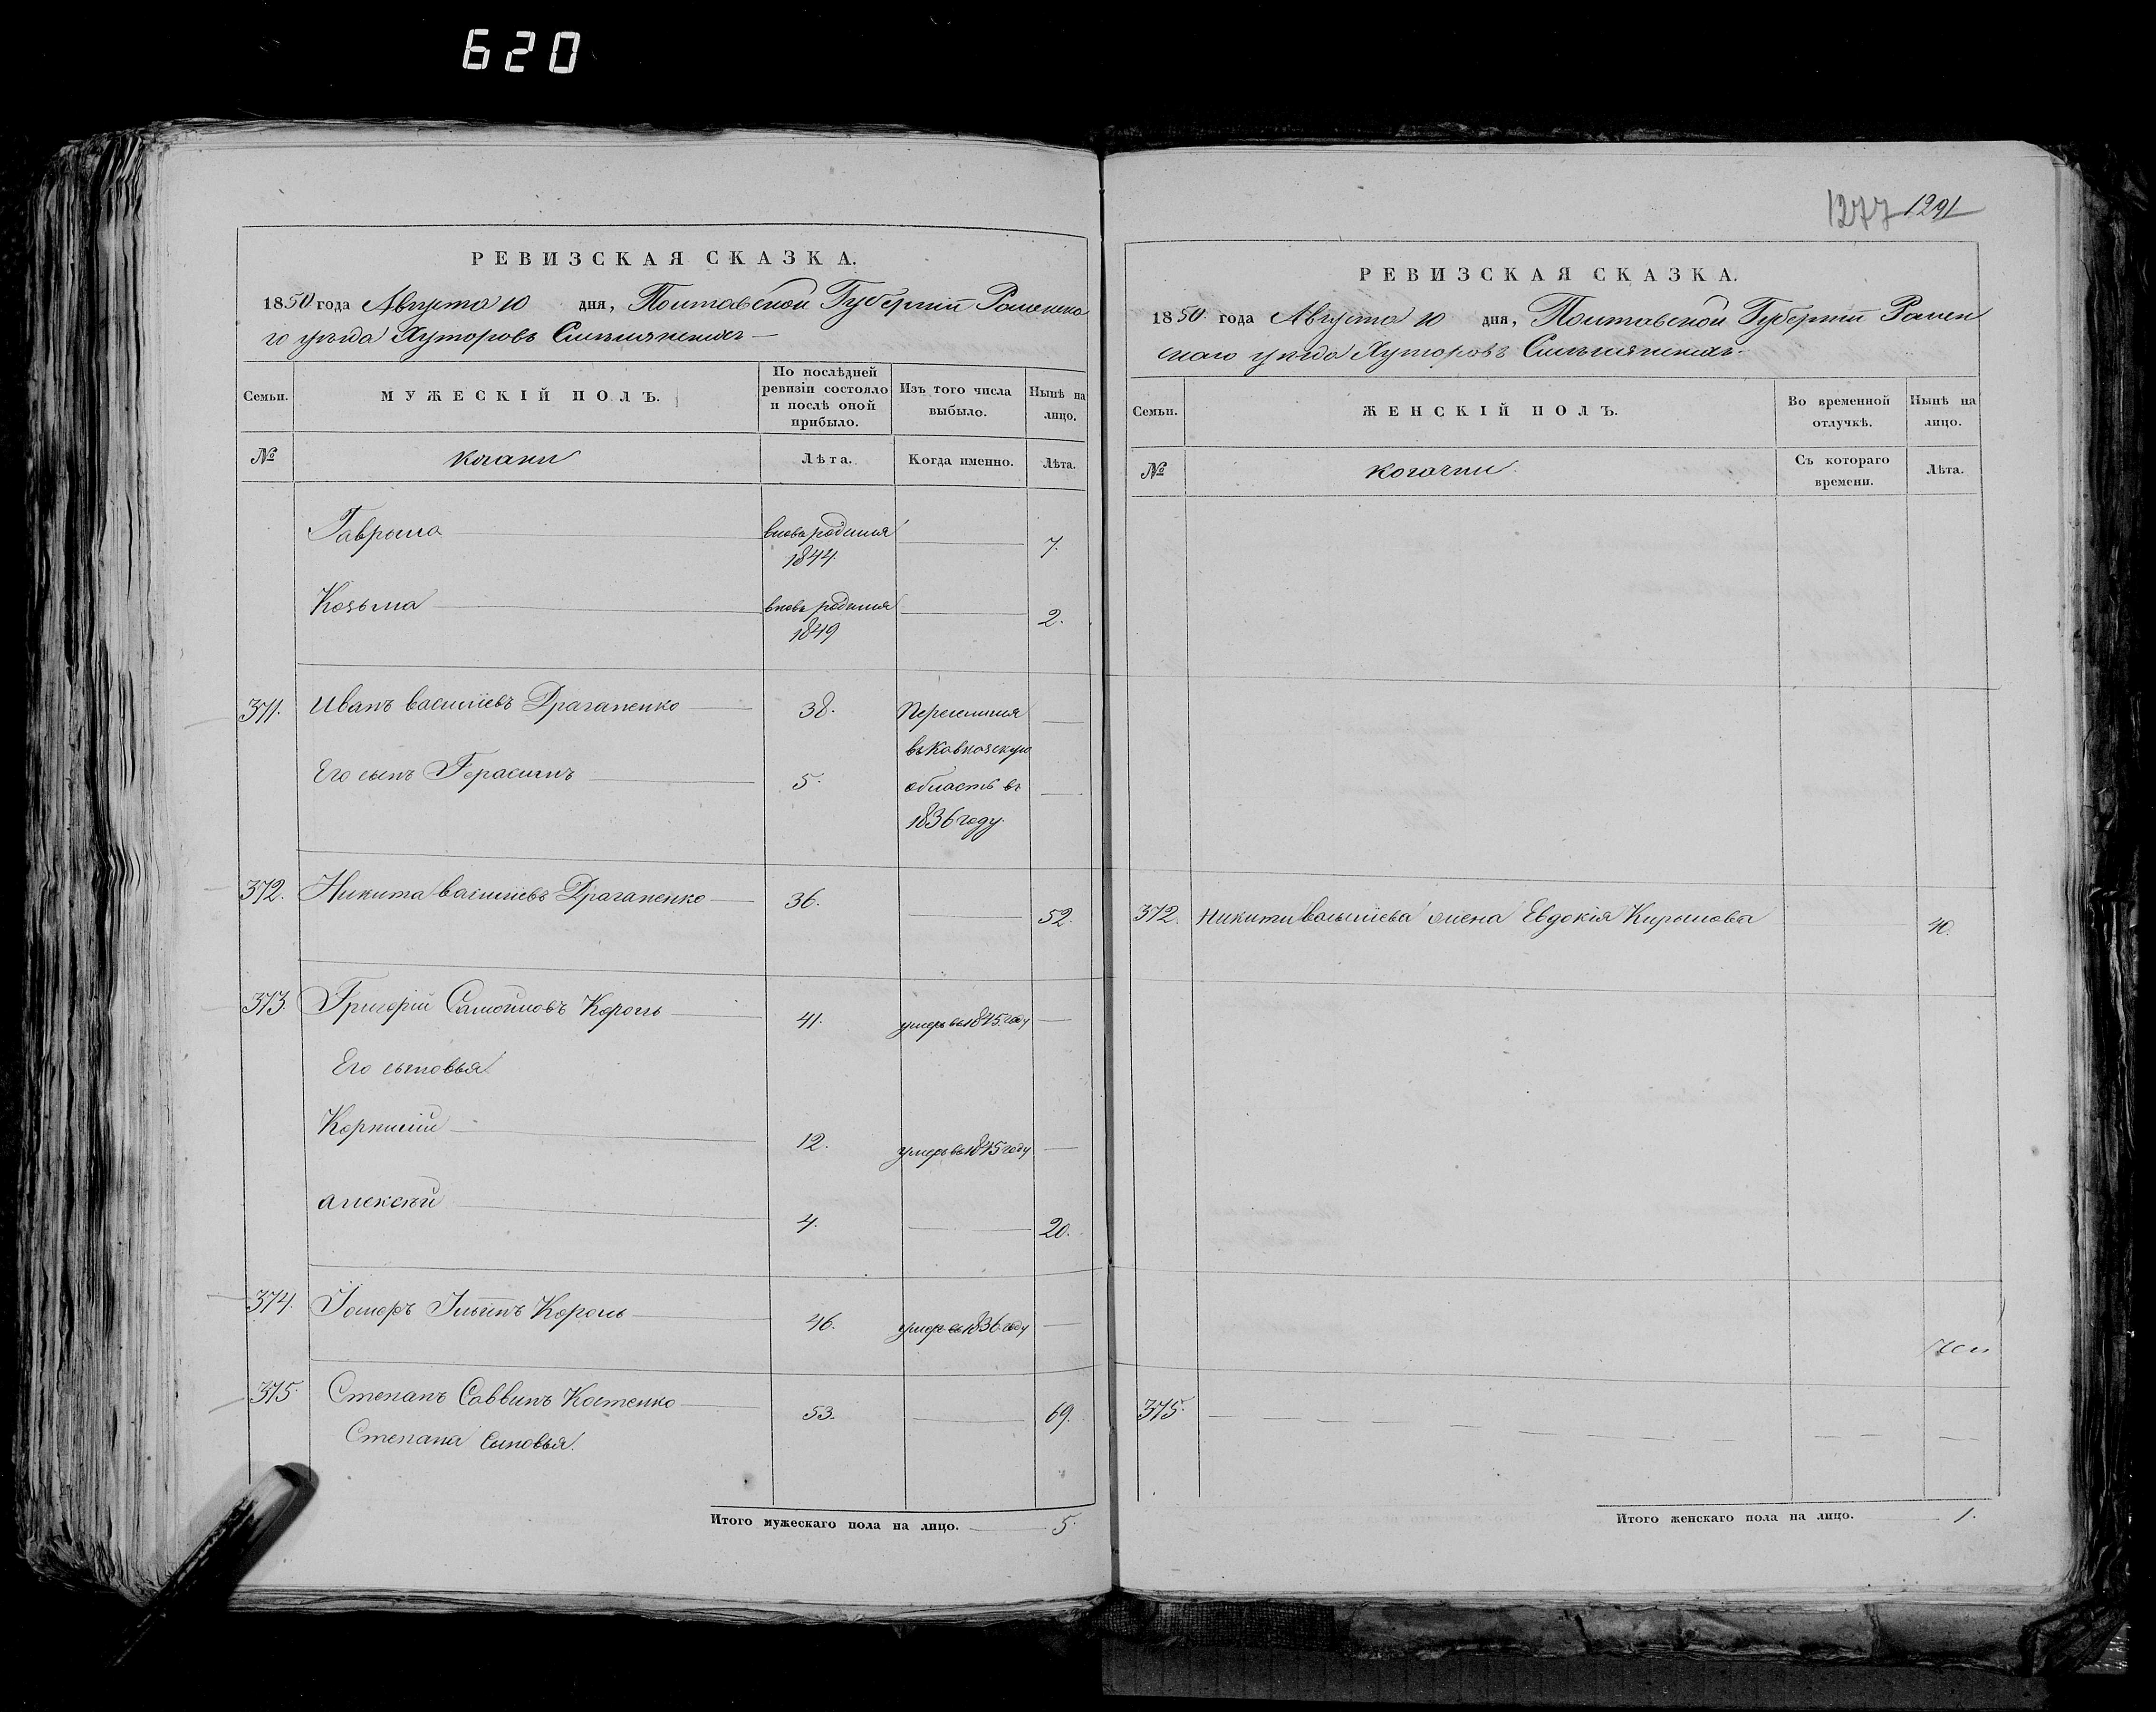 620
РЕВИЗСКАЯ СКАЗКА.
1850 года Августа 10 дня, Полтавской Губерніи Роменско
го уѣзда Хуторовъ
Семьи.
МУЖЕСКІЙ ПОЛЪ.
По послѣдней ревизіи состояло и послѣ оной прибыло.
Изъ того числа выбыло.
Нынѣ на лицо.
№
козаки
Лѣта.
Когда именно.
Лѣта.
Гаврыла
вновь родился 1844
7.
Козьма
вновь родился 1849
2.
371. Иванъ васильевъ Драганенко 38. Переселился
въ Кавказскую
Его сынъ Герасимъ 5. область въ
1836 году.
372. Никита васильевъ Драганенко 36. 52.
373. Григорій Самойловъ Король 41. умеръ въ 1845 году
Его сыновья
Корнилій 12. умеръ въ 1845 году
алексѣй 4. 20.
374. Ильинъ Король 46. умеръ въ 1836 году
375. Степанъ Саввинъ Костенко 53. 69.
Степана Сыновья.
Итого мужескаго пола на лицо. 5.
1277 1291
РЕВИЗСКАЯ СКАЗКА.
1850 года Августа 10 дня, Полтавской Губерніи Ромен
скаго уѣзда Хуторовъ
Семьи.
ЖЕНСКІЙ ПОЛЪ.
Во временной отлучкѣ.
Нынѣ на лицо.
№
козачки
Съ котораго времени.
Лѣта.
372. Никиты васильева жена Евдокія Кирылова 40.
375.
Итого женскаго пола на лицо. 1.